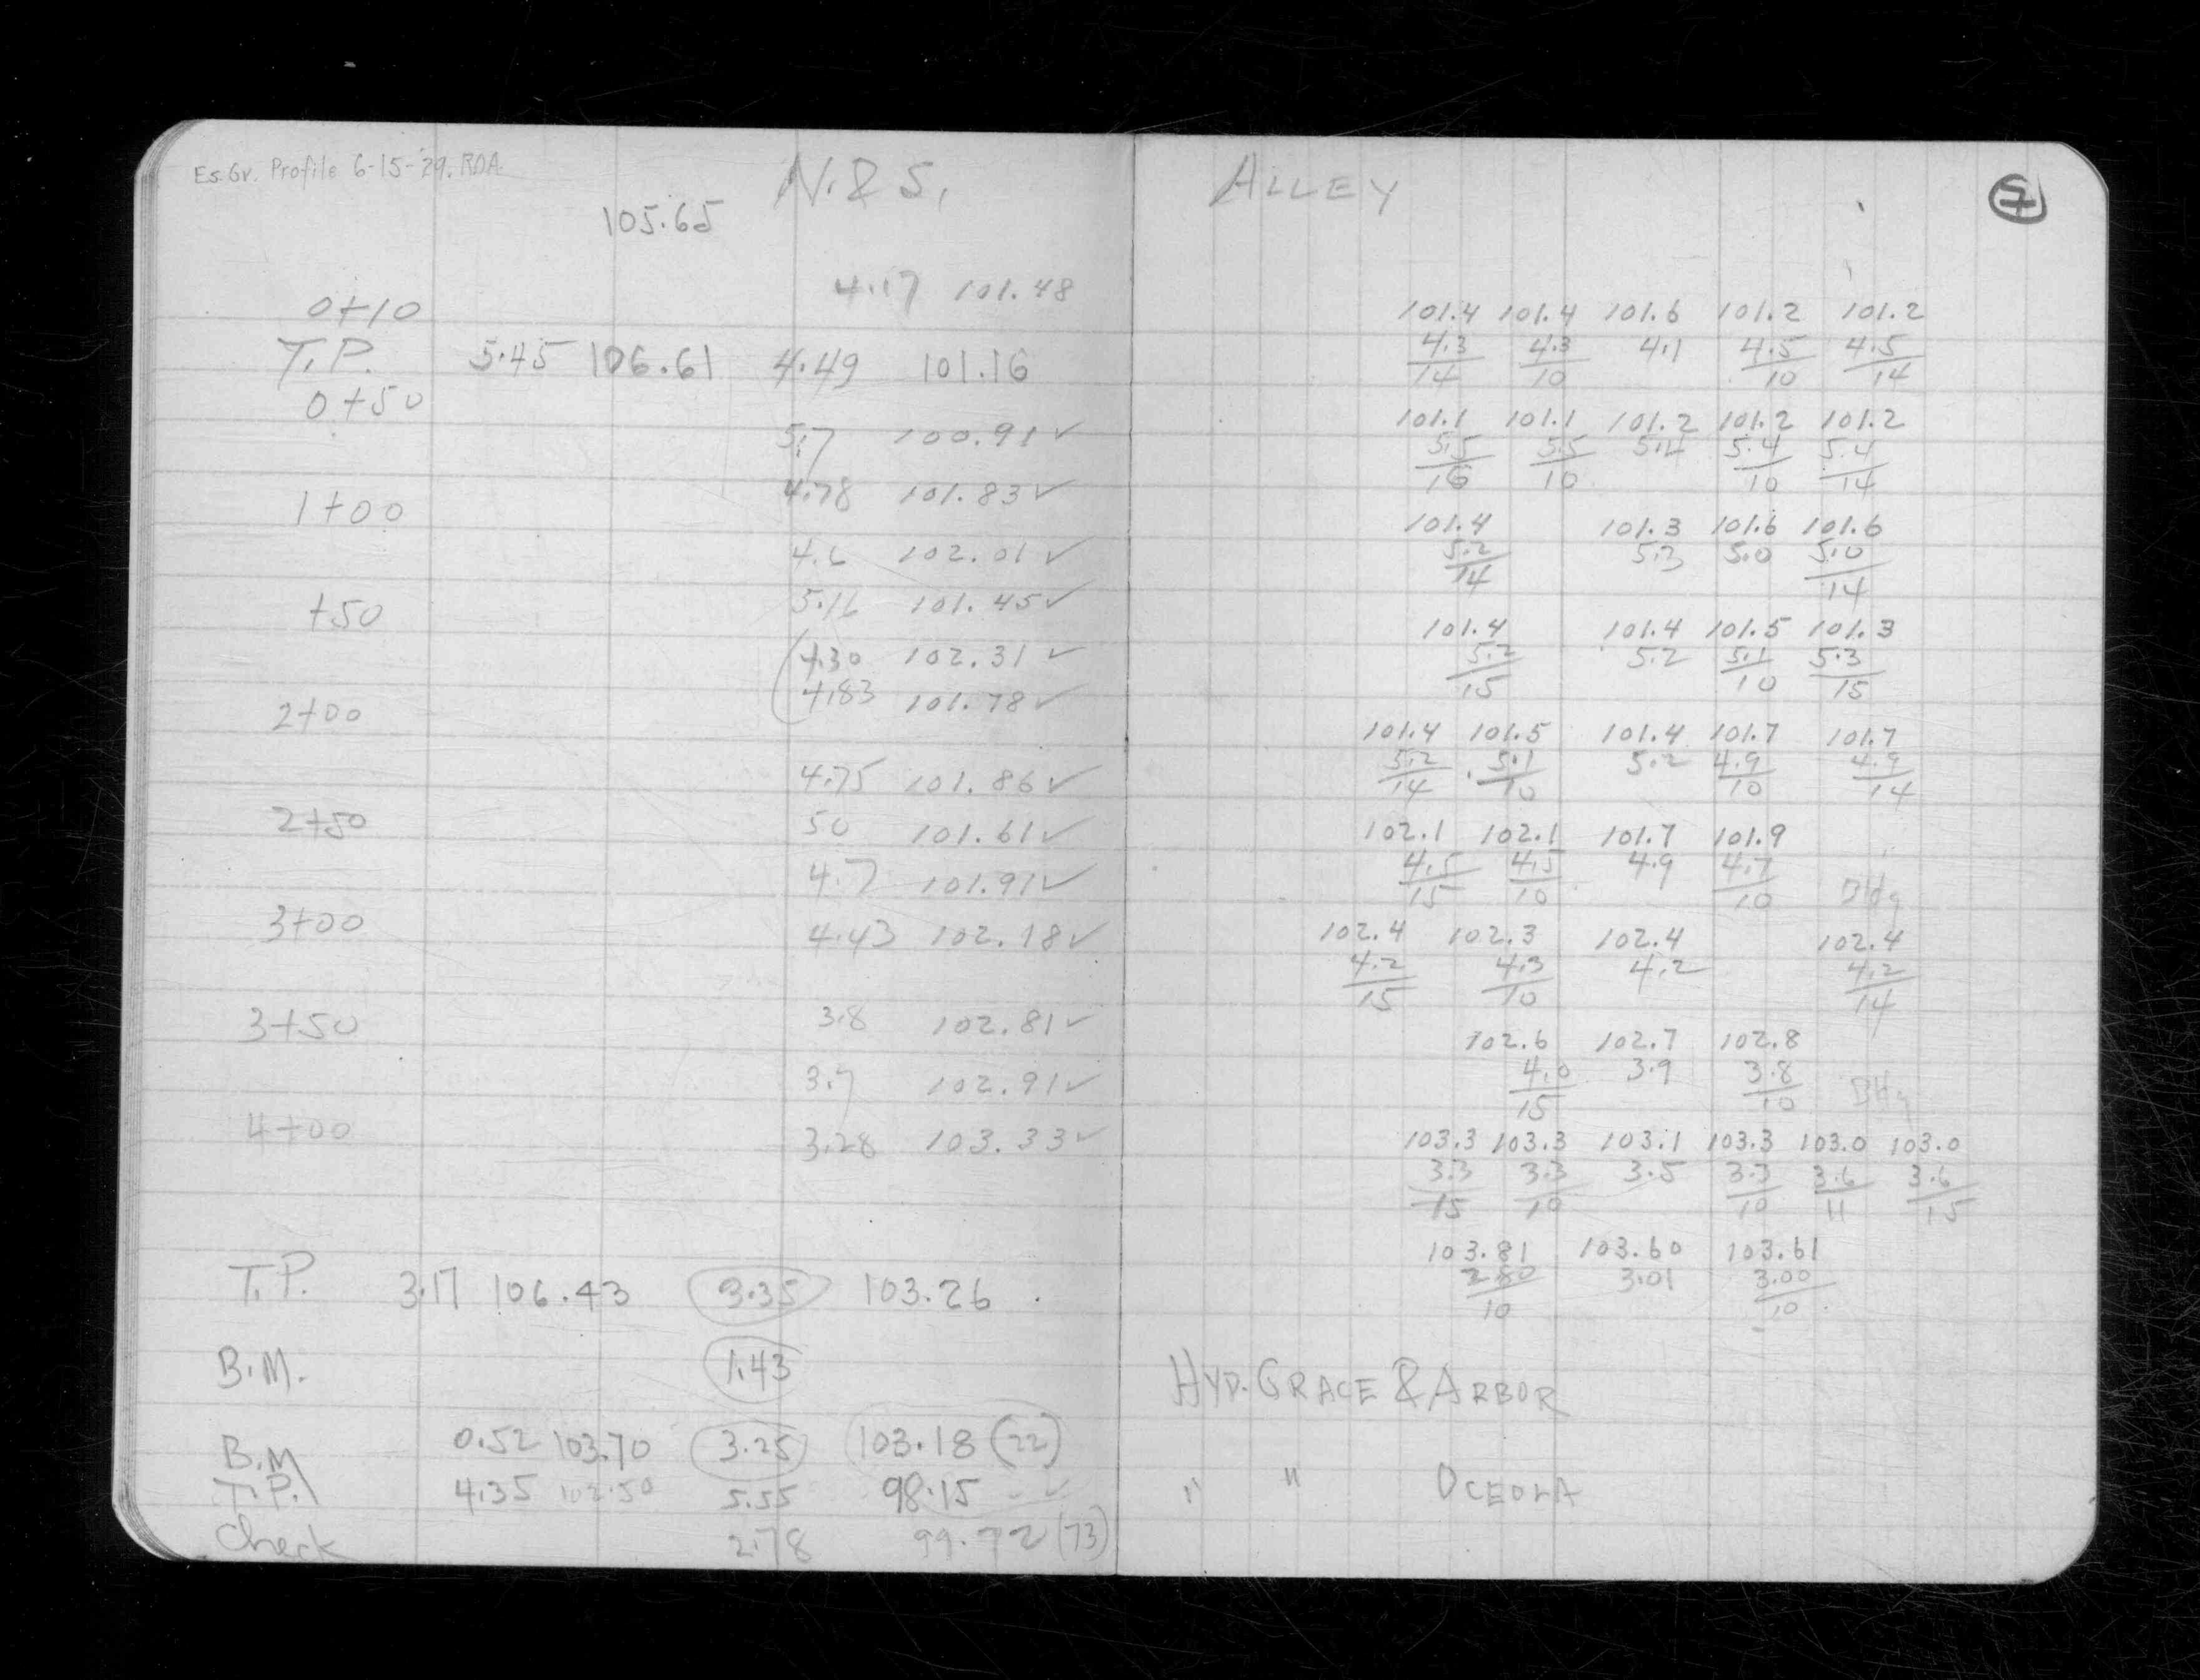 Es. Gr. Profile 6-15-'29. RDA.
N. & S. ALLEY
105.65
4.17 101.48
0+10 101.4 101.4 101.6 101.2 101.2
4.3/14 4.3/10 4.1 4.5/10 4.5/14
T.P. 5.45 106.61 4.49 101.16
0+50 101.1 101.1 101.2 101.2 101.2
5.7 100.91 ✓ 5.5/16 5.5/10 5.4 5.4/10 5.4/14
4.78 101.83 ✓
1+00 101.4 101.3 101.6 101.6
4.6 102.01 ✓ 5.2/14 5.3 5.0 5.0/14
5.16 101.45 ✓
+50 101.4 101.4 101.5 101.3
4.30 102.31 ✓ 5.2/15 5.2 5.1/10 5.3/15
4.83 101.78 ✓
2+00 101.4 101.5 101.4 101.7 101.7
4.75 101.86 ✓ 5.2/14 5.1/10 5.2 4.9/10 4.9/14
2+50 50 101.61 ✓ 102.1 102.1 101.7 101.9
4.7 101.91 ✓ 4.5/15 4.5/10 4.9 4.7/10 Bldg
3+00 4.43 102.18 ✓ 102.4 102.3 102.4 102.4
4.2/15 4.3/10 4.2 4.2/14
3+50 3.8 102.81 ✓ 102.6 102.7 102.8
3.7 102.91 ✓ 4.0/15 3.9 3.8/10 Bldg
4+00 3.28 103.33 ✓ 103.3 103.3 103.1 103.3 103.0 103.0
3.3/15 3.3/10 3.5 3.3/10 3.6/11 3.6/15
103.81 103.60 103.61
2.80/10 3.01 3.00/10
T.P. 3.17 106.43 3.35 103.26
B.M. 1.43 HYD. GRACE & ARBOR
B.M 0.52 103.70 3.25 103.18 (22)
T.P. 4.35 102.50 5.55 98.15 ✓ " " OCEOLA
Check 2.78 99.72 (73)